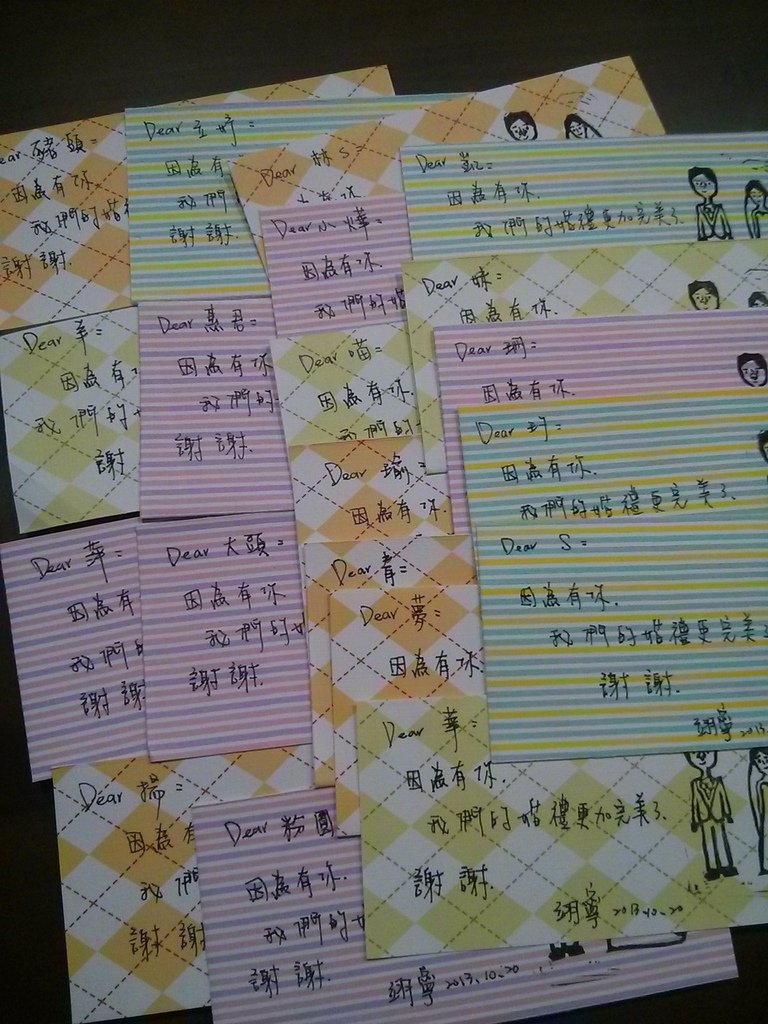 Dear 豬頭:
因為有你.
我們的婚
謝謝.
Dear 立婷:
因為有
我們
謝謝.
Dear 林S:
Dear 凱:
因為有你.
我們的婚禮更加完美了.
Dear 小燁:
因為有你.
我們的婚
Dear 妹:
因為有你.
Dear 羊:
因為有
我們的
謝
Dear 惠君:
因為有你
我們的
謝謝.
Dear 喵:
因為有你.
我們的
Dear 珊:
因為有你.
Dear 玓:
因為有你.
我們的婚禮更完美了.
Dear 瑜:
因為有你.
Dear 華:
因為有
我們的
謝謝
Dear 大頭:
因為有你
我們的
謝謝.
Dear 青:
Dear S:
因為有你.
我們的婚禮更加完美
謝謝.
翊寧 2013.
Dear 夢:
因為有你.
Dear 華:
因為有你.
我們的婚禮更加完美了
謝謝.
翊寧 2013.10.20
Dear 揚:
因為有
我們
謝謝
Dear 粉圓
因為有你.
我們的
謝謝.
翊寧 2013.10.20